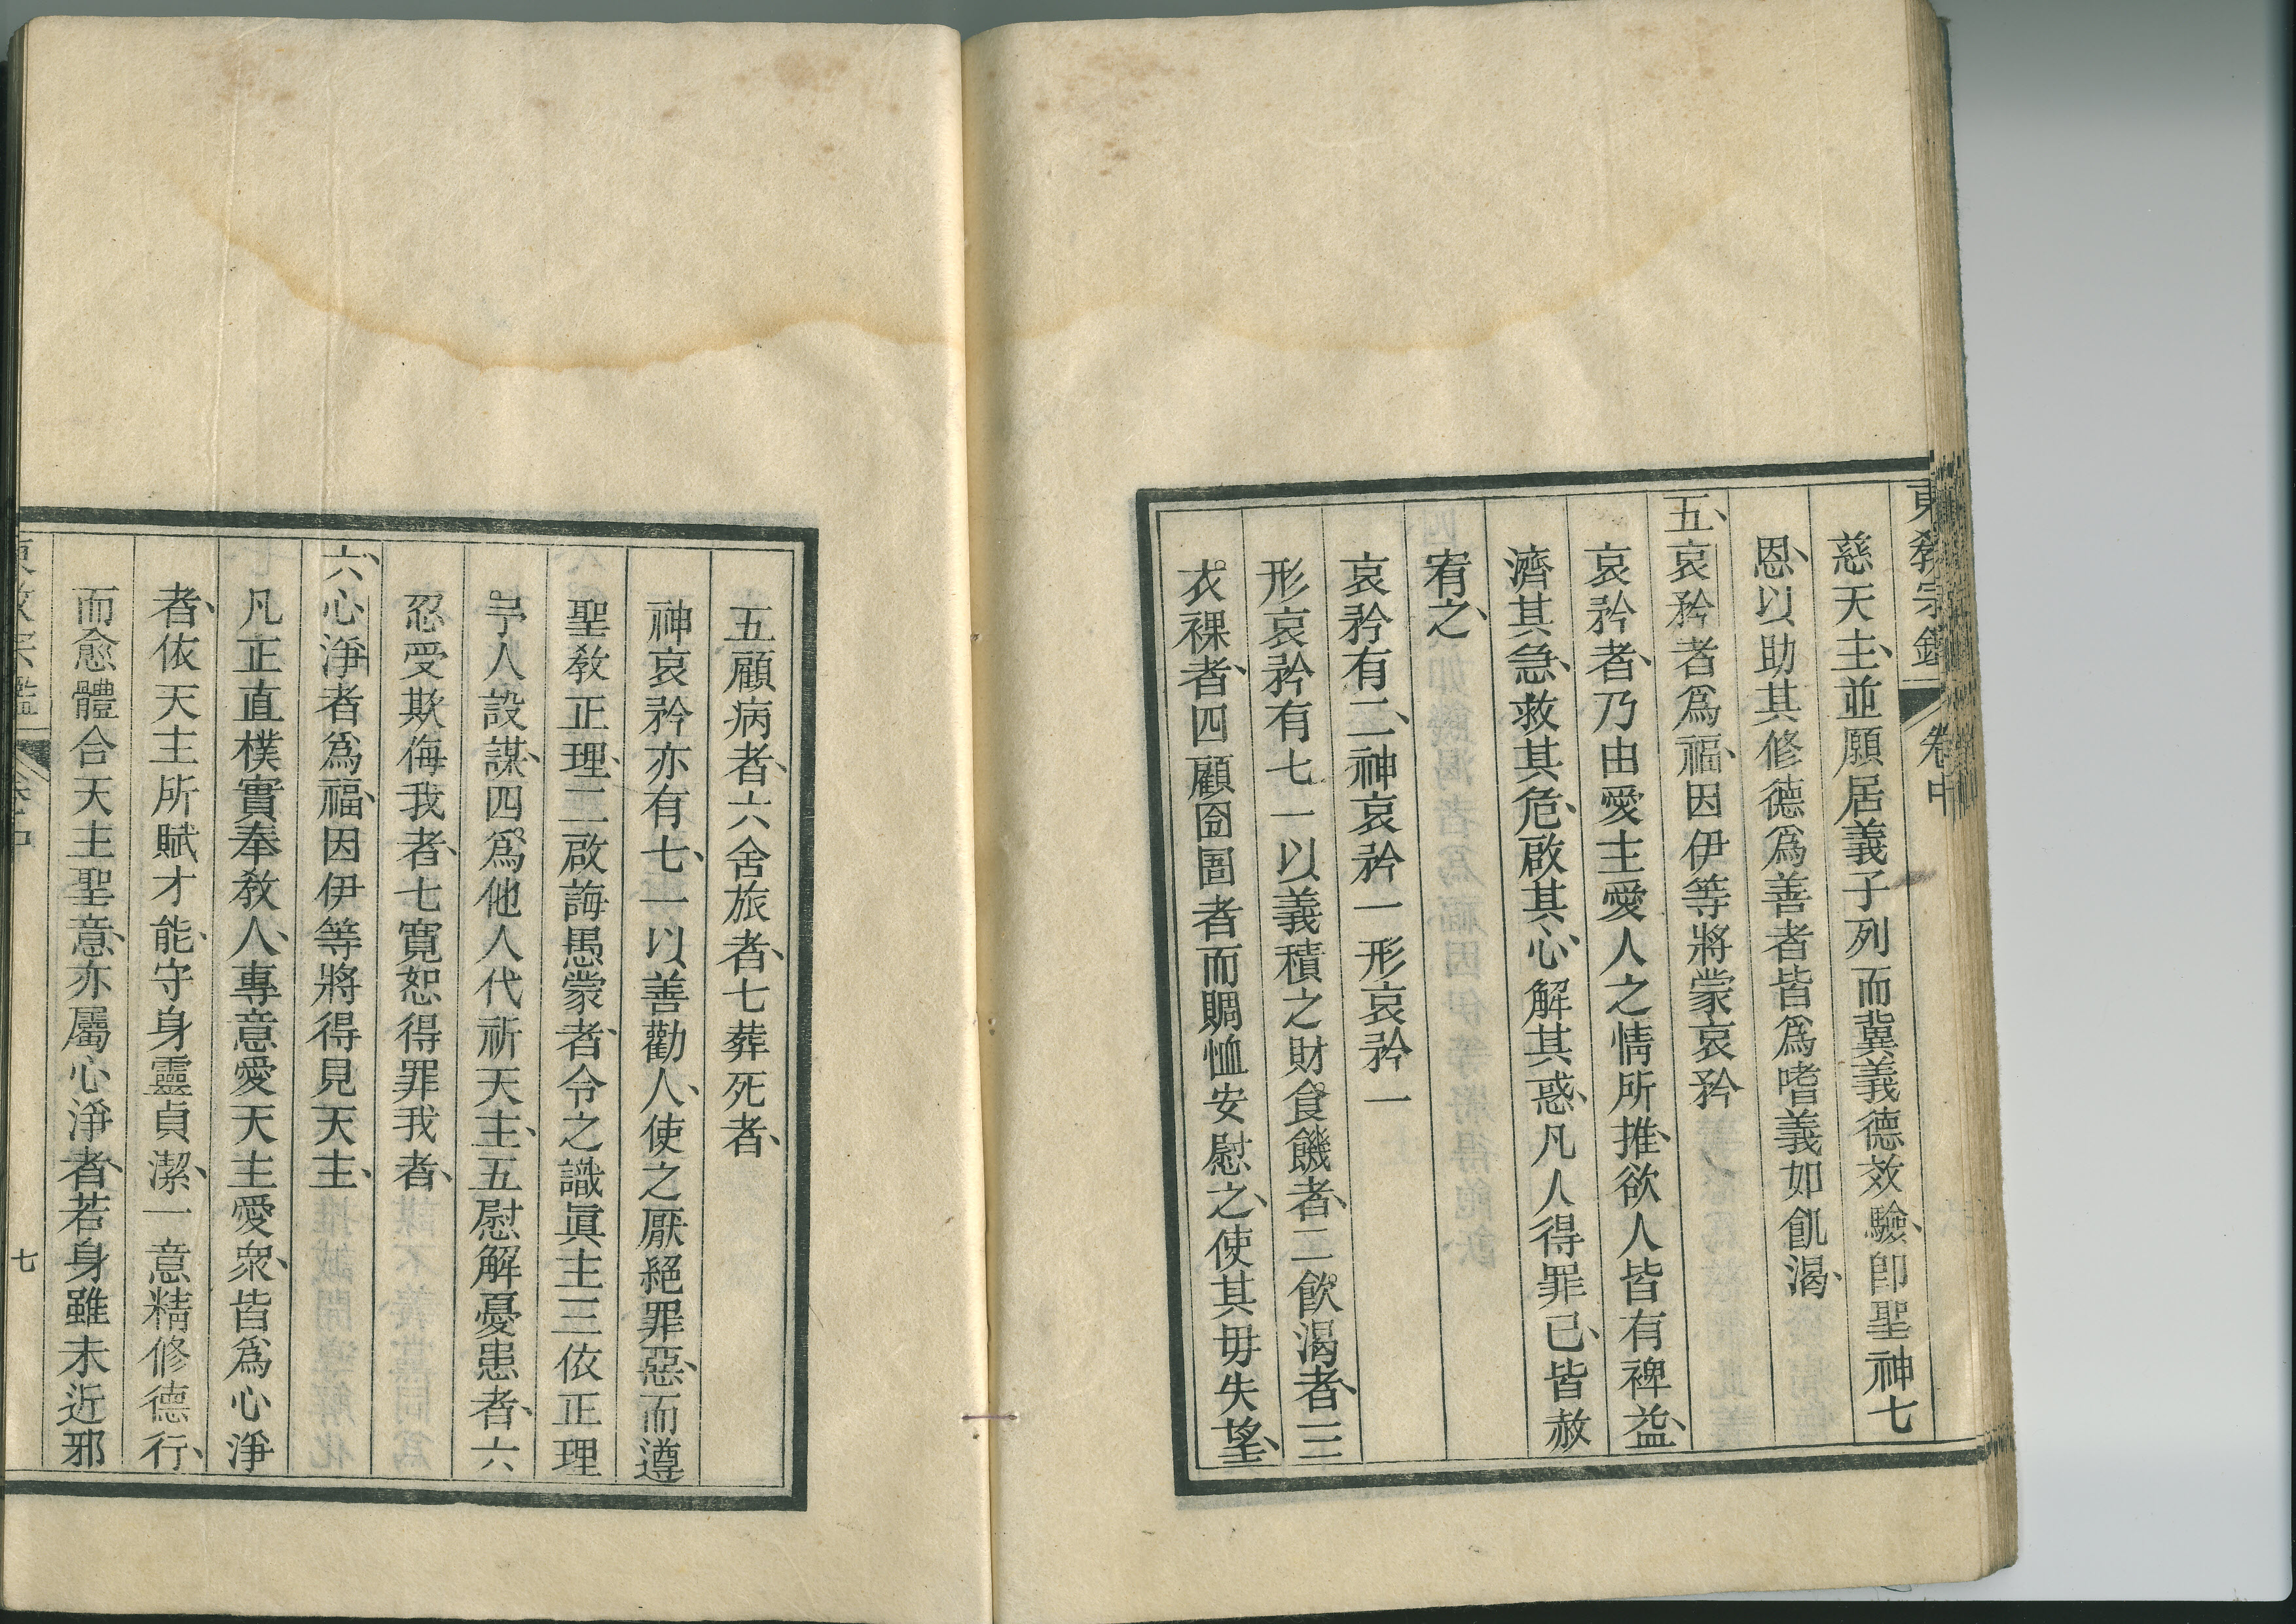 東敎宗鑑 卷中
慈天主、並願居義子列而冀義德效驗、卽聖神七
恩、以助其修德爲善者皆爲嗜義如飢渴、
五、哀矜者爲福、因伊等將蒙哀矜
哀矜者、乃由愛主愛人之情所推、欲人皆有裨益、
濟其急、救其危、啟其心、解其惑、凡人得罪己、皆赦
宥之、
哀矜有二、神哀矜一形哀矜一
形哀矜有七一以義積之財食饑者、二飮渴者、三
衣裸者、四顧囹圄者而賙恤安慰之、使其毋失望、
五顧病者、六舍旅者、七葬死者、
神哀矜亦有七、一以善勸人、使之厭絕罪惡、而遵
聖敎正理、二啟誨愚蒙者、令之識眞主三依正理
予人設謀、四爲他人代祈天主、五慰解憂患者、六
忍受欺侮我者、七寬恕得罪我者、
六、心淨者爲福、因伊等將得見天主、
凡正直樸實奉敎人、專意愛天主愛衆、皆爲心淨
者、依天主所賦才能、守身靈貞潔、一意精修德行、
而愈體合天主聖意、亦屬心淨者、若身雖未近邪
東敎宗鑑 卷中 七